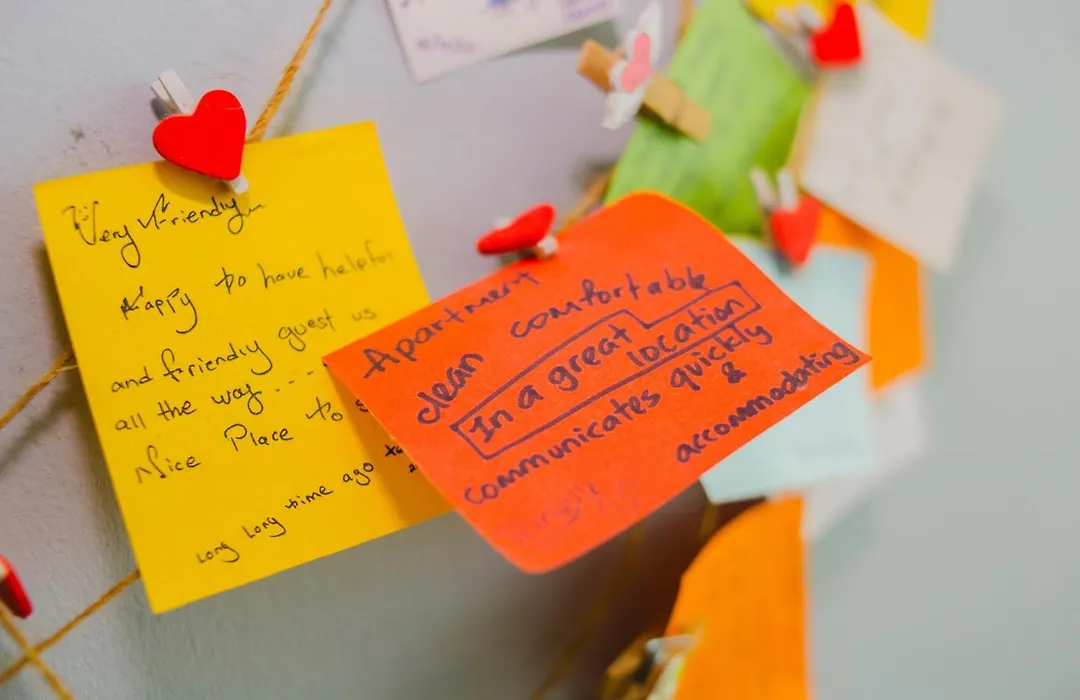 Very friendly
Happy to have helpfor
and friendly guest us
all the way ----
Nice Place to
Long Long time ago
Apartment
clean comfortable
In a great location
communicates quickly
&
accommodating